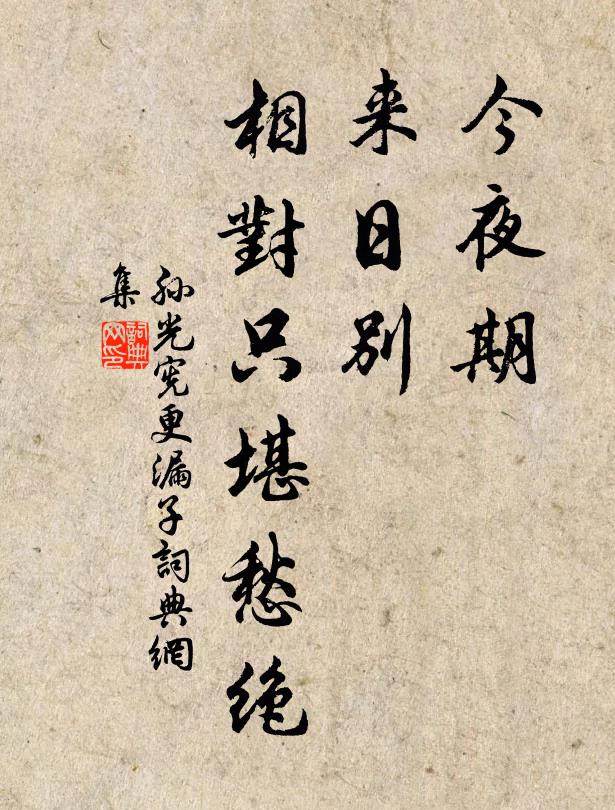 今夜期
来日別
相對只堪愁绝
孙光宪更漏子詞典網
集
詞典
网印